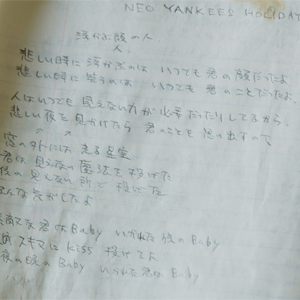 NEO YANKEES HOLIDAY
浮かぶ顔の人
人
悲しい時に浮かぶのは いつでも君の顔だったよ
悲しい時に笑うのは いつでも君のことだったよ
人はいつでも 見えない力が必要だったりしてるから
悲しい夜を見かけたら 君のことを思い出すのさ
窓の外には 光る星空
君は 見えない魔法を投げた
僕の 見えない所で 投げた
そんな気がしたよ
素敵な君はBaby いかれた僕のBaby
スキマにKiss 投げてよ
の Baby いかれた君は Baby